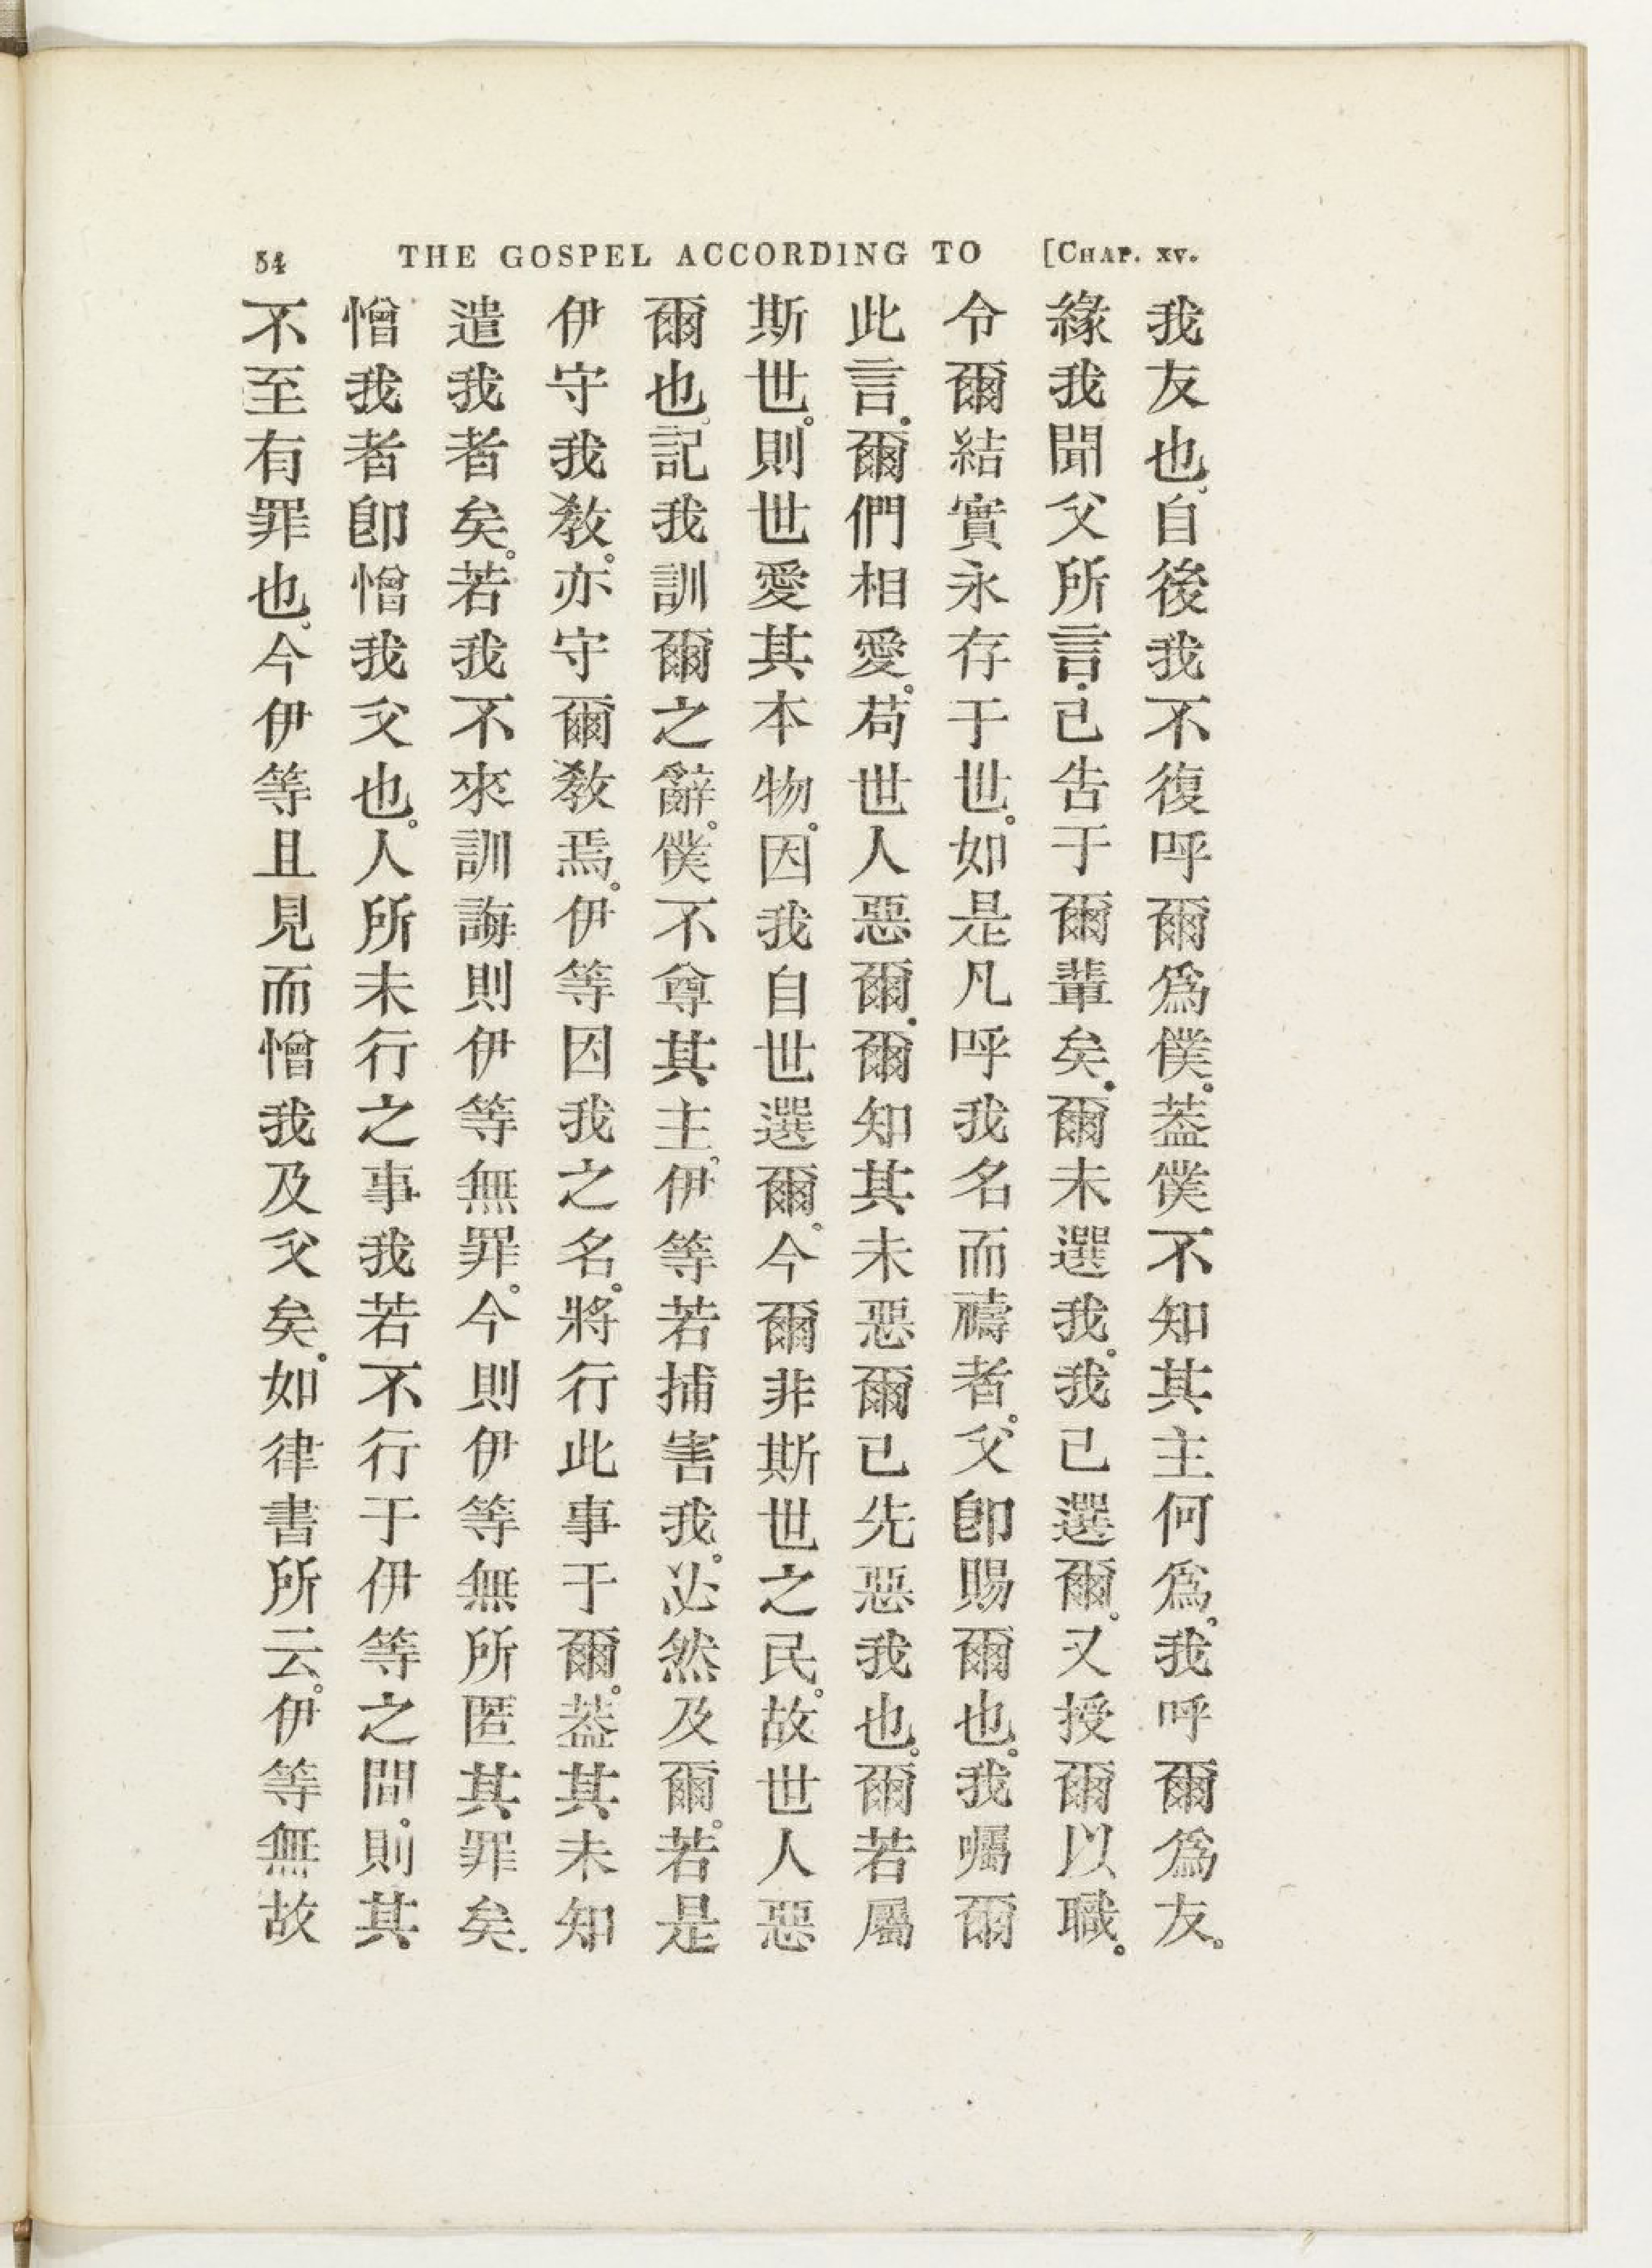 54 THE GOSPEL ACCORDING TO [CHAP. XV.
我友也。自後我不復呼爾爲僕。葢僕不知其主何爲。我呼爾爲友。
緣我聞父所言。已告于爾輩矣。爾未選我。我已選爾。又授爾以職。
令爾結實永存于世。如是凡呼我名而禱者。父卽賜爾也。我囑爾
此言。爾們相愛。苟世人惡爾。爾知其未惡爾已先惡我也。爾若屬
斯世。則世愛其本物。因我自世選爾。今爾非斯世之民。故世人惡
爾也。記我訓爾之辭。僕不尊其主。伊等若捕害我。必然及爾。若是
伊守我教。亦守爾教焉。伊等因我之名。將行此事于爾。葢其未知
遣我者矣。若我不來訓誨則伊等無罪。今則伊等無所匿其罪矣.
憎我者卽憎我父也。人所未行之事我若不行于伊等之間。則其
不至有罪也。今伊等且見而憎我及父矣。如律書所云。伊等無故